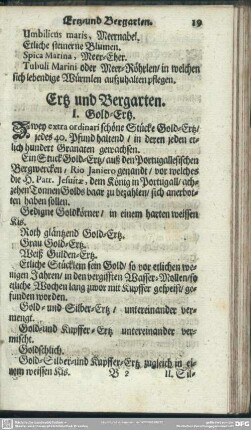 Ertz-und Bergarten. 19
Umbilicus maris, Meernabel.
Etliche steinerne Blumen.
Spica Marina, Meer-Eher.
Tubuli Marini oder Meer-Röhrlen/ in welchen
sich lebendige Würmlen auffzuhalten pflegen.
Ertz und Bergarten.
I. Gold-Ertz.
Zwey extra ordinari schöne Stücke Gold-Ertz/
jedes 40. Pfund haltend/ in deren jeden et-
lich hundert Granaten gewachsen.
Ein Stuck Gold-Ertz/ auß den Portugallesischen
Bergwercken/ Rio Janiero genandt/ vor welches
die H. Patr. Jesuitæ, dem König in Portugall/ ach-
zehen Tonnen Golds baar zu bezahlen/ sich anerbot-
ten haben sollen.
Gedigne Goldkörner/ in einem harten weissen
Kis.
Roth gläntzend Gold-Ertz.
Grau Gold-Ertz.
Weiß Gulden-Ertz.
Etliche Stücklein fein Gold/ so vor etlichen we-
nigen Jahren/ in den vergifften Wasser-Mollen/ so
etliche Wochen lang zwor mit Kupffer gespeist/ ge-
funden worden.
Gold-und Silber-Ertz/ untereinander ver-
menget.
Gold-und Kupffer-Ertz untereinander ver-
mischt.
Goldschlich.
Gold-Silber-und Kupffer-Ertz zugleich in ei-
nem weissen Kis.
B 2 II. Sil-